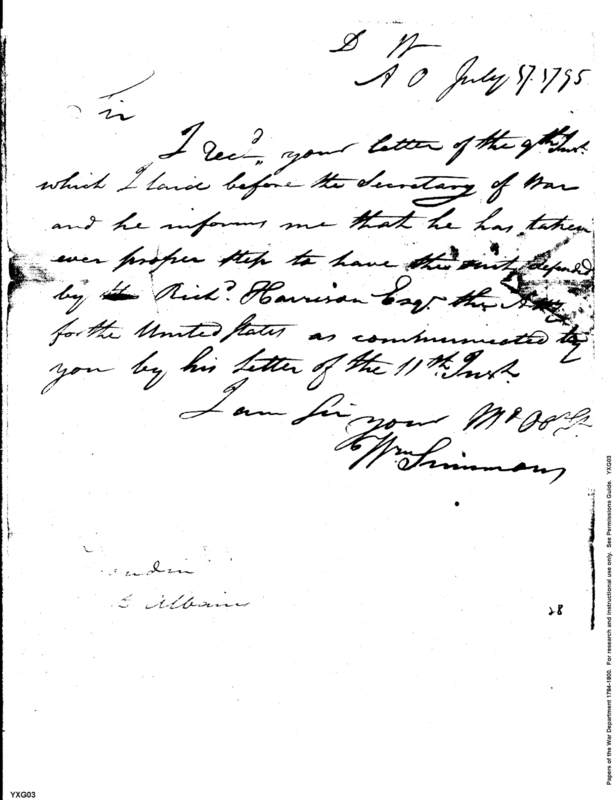 D W
A O July 17. 1795
Sir
I recd. your letter of the 9th Inst.
which I laid before the Secretary of War
and he informs me that he has taken
ever proper step to have the suit defended
by Richd. Harrison Esqr. the Atty
for the United States as communicated to
you by his Letter of the 11th. Inst.
I am Sir your Mo Ob St.
Wm Simmons
Albany
28
Papers of the War Department 1784-1800. For research and instructional use only. See Permissions Guide. YXG03
YXG03